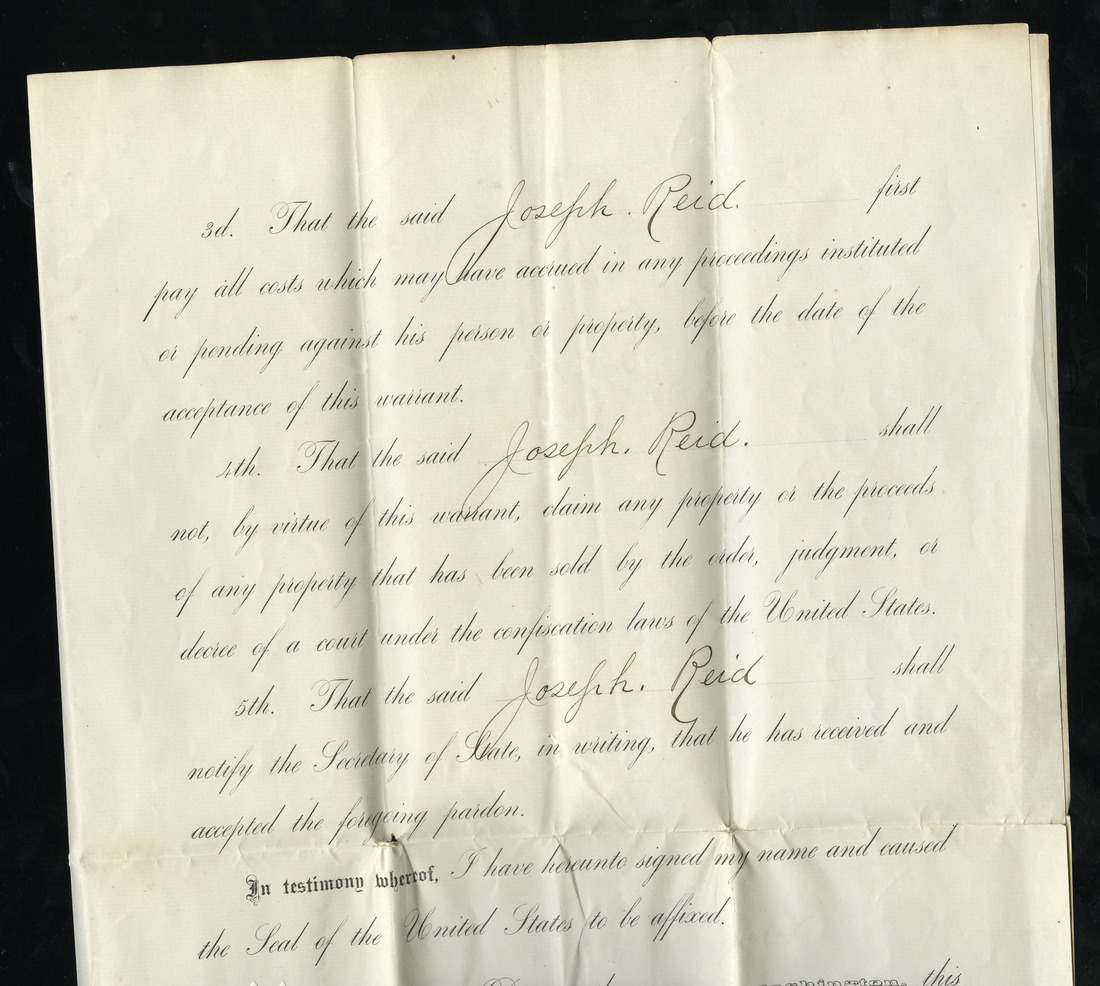 3d. That the said Joseph. Reid. first
pay all costs which may have accrued in any proceedings instituted
or pending against his person or property, before the date of the
acceptance of this warrant.
4th. That the said Joseph. Reid. shall
not, by virtue of this warrant, claim any property or the proceeds
of any property that has been sold by the order, judgment, or
decree of a court under the confiscation laws of the United States.
5th. That the said Joseph. Reid shall
notify the Secretary of State, in writing, that he has received and
accepted the foregoing pardon.
In testimony whereof, I have hereunto signed my name and caused
the Seal of the United States to be affixed.
this